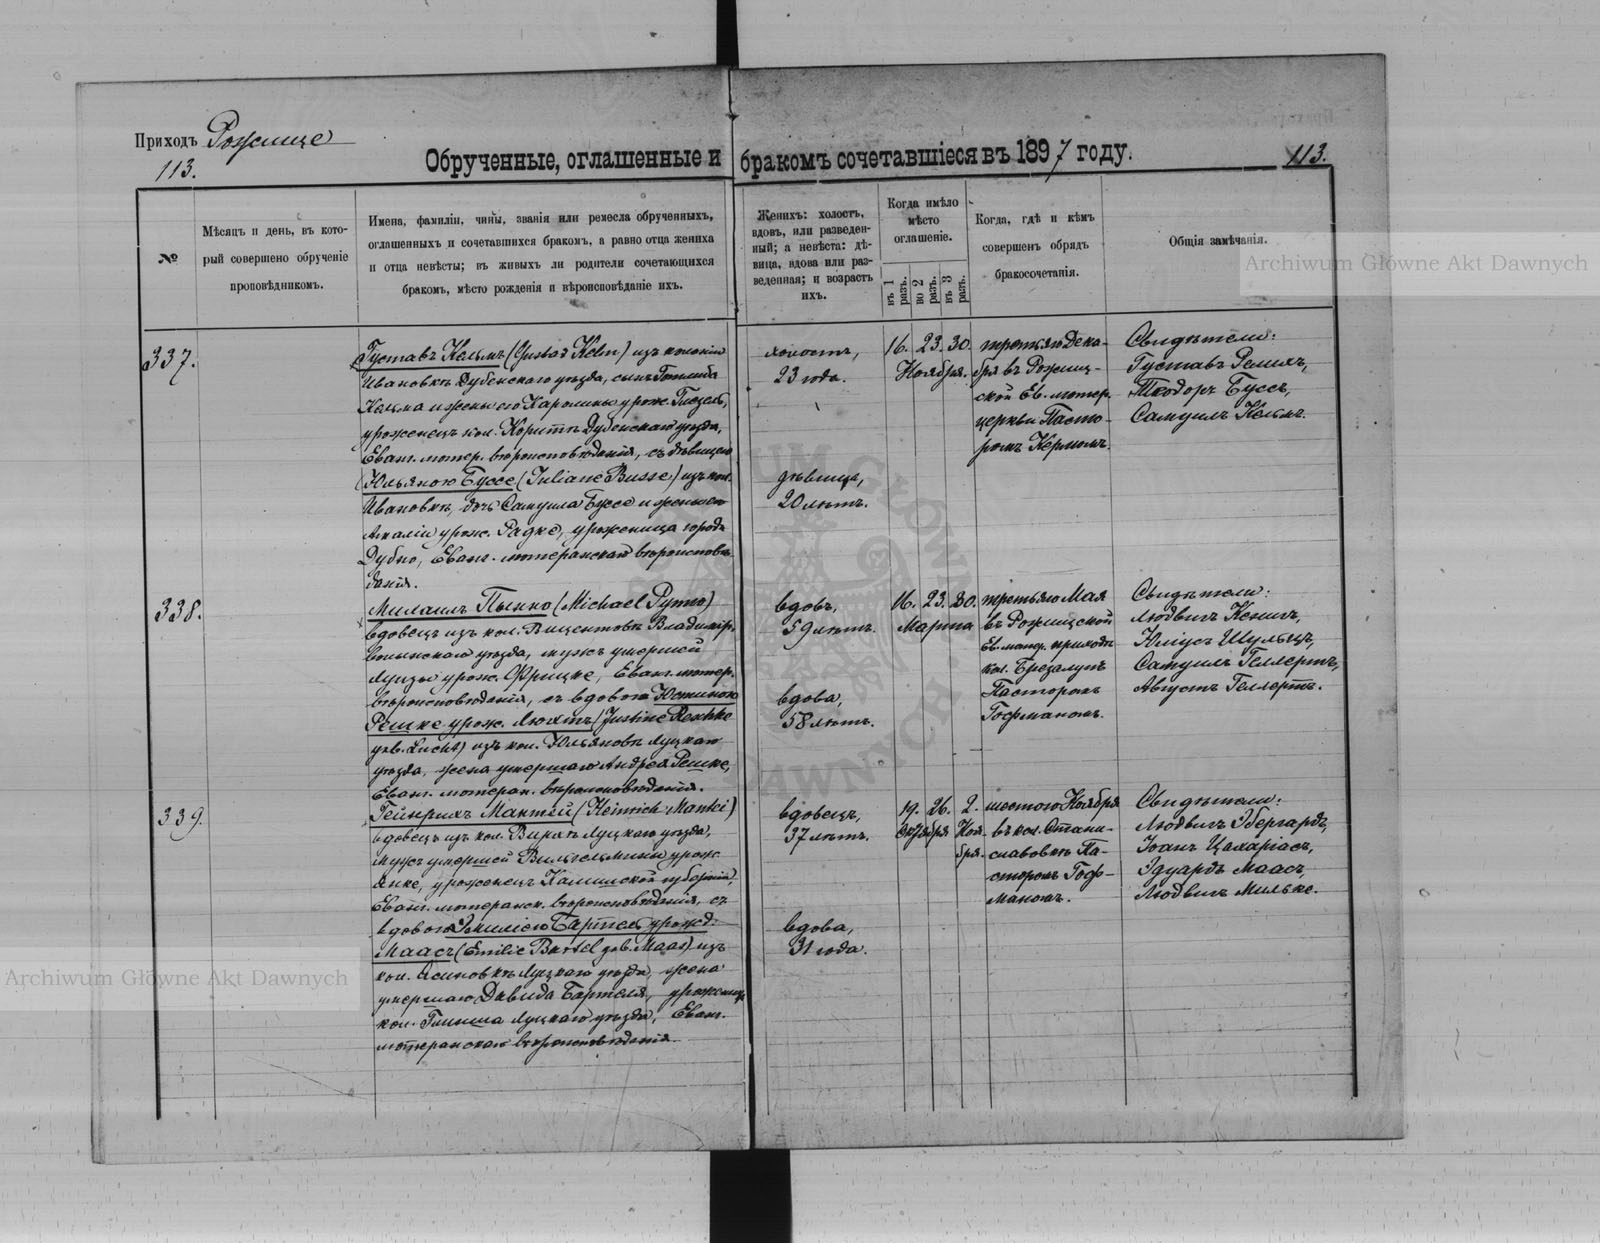 Приходъ Рожище
113.
Обрученные, оглашенные и бракомъ сочетавшіеся въ 1897 году.
113.
№
Мѣсяцъ и день, въ кото-
рый совершено обрученіе
проповѣдникомъ.
Имена, фамиліи, чины, званія или ремесла обрученныхъ,
оглашенныхъ и сочетавшихся бракомъ, а равно отца жениха
и отца невѣсты; въ живыхъ ли родители сочетающихся
бракомъ, мѣсто рожденія и вѣроисповѣданіе ихъ.
Женихъ: холостъ,
вдовъ, или разведен-
ный; а невѣста: дѣ-
вица, вдова или раз-
веденная; и возрастъ
ихъ.
Когда имѣло
мѣсто
оглашеніе.
въ 1 разъ.
во 2 разъ.
въ 3 разъ.
Когда, гдѣ и кѣмъ
совершенъ обрядъ
бракосочетанія.
Общія замѣчанія.
337.
Густавъ Кельмъ (Gustav Kelm) изъ колоніи
Ивановкѣ Дубенскаго уѣзда, сынъ Готлиба
Кельма и жены его Каролины урож.
уроженецъ кол. Корытъ Дубенскаго уѣзда,
Еванг. лютер. вѣроисповѣданія, съ дѣвицею
Юльяною Буссе (Juliane Busse) изъ кол.
Ивановкѣ, дочь Самуила Буссе и жены его
Амаліи урож. Радке, уроженица города
Дубно, Еванг. лютеранскаго вѣроисповѣ-
данія.
холостъ,
23 года.
дѣвица,
20 лѣтъ.
16. 23. 30.
Ноября.
третьяго Дека-
бря въ Рожищ-
ской Ев. лютер.
церкви Пасто-
ромъ Кермомъ.
Свидѣтели:
Густавъ
Теодоръ Буссе,
Самуилъ Кельмъ.
338.
Михаилъ Пыкко (Michael
вдовецъ изъ кол. Вицентовкѣ Владимір-
волынскаго уѣзда, мужъ умершей
Луизы урож. Фрицке, Еванг. лютер.
вѣроисповѣданія, съ вдовою Юстиною
Решке урож. Люхтъ (Justine Reschke
geb. Lucht) изъ кол. Юльяновкѣ Луцкаго
уѣзда, жена умершаго Андрея Решке,
Еванг. лютеран. вѣроисповѣданія.
вдовъ,
59 лѣтъ.
вдова,
58 лѣтъ.
16. 23. 30.
Марта
третьяго Мая
въ Рожищской
Ев. лютер. приходѣ
кол.
Пасторомъ
Гофманомъ.
Свидѣтели:
Людвигъ Кенигъ,
Юліусъ Шульцъ,
Самуилъ Геллертъ,
Августъ Геллертъ.
339.
Гейнрихъ Мантей (Heinrich Mantei)
вдовецъ изъ кол. Луцкаго уѣзда,
мужъ умершей Вильгельмины урож.
Янке, уроженецъ Калишской губерніи,
Еванг. лютеранск. вѣроисповѣданія, съ
вдовою Эмиліею Бартель урожд.
Маасъ (Emilie Bartel geb. Maas) изъ
кол. Асиновкѣ Луцкаго уѣзда, жена
умершаго Давида Бартеля, уроженица
кол. Глинища Луцкаго уѣзда, Еванг.
лютеранскаго вѣроисповѣданія.
вдовецъ,
37 лѣтъ.
вдова,
31 года.
19. 26. 2.
Октября Ноя-
бря.
шестого Ноября
въ кол. Стани-
славовкѣ Па-
сторомъ Гоф-
маномъ.
Свидѣтели:
Людвигъ Эбергардъ,
Іоанъ Цахаріасъ,
Эдуардъ Маасъ,
Людвигъ Мильке.
Archiwum Główne Akt Dawnych
Archiwum Główne Akt Dawnych